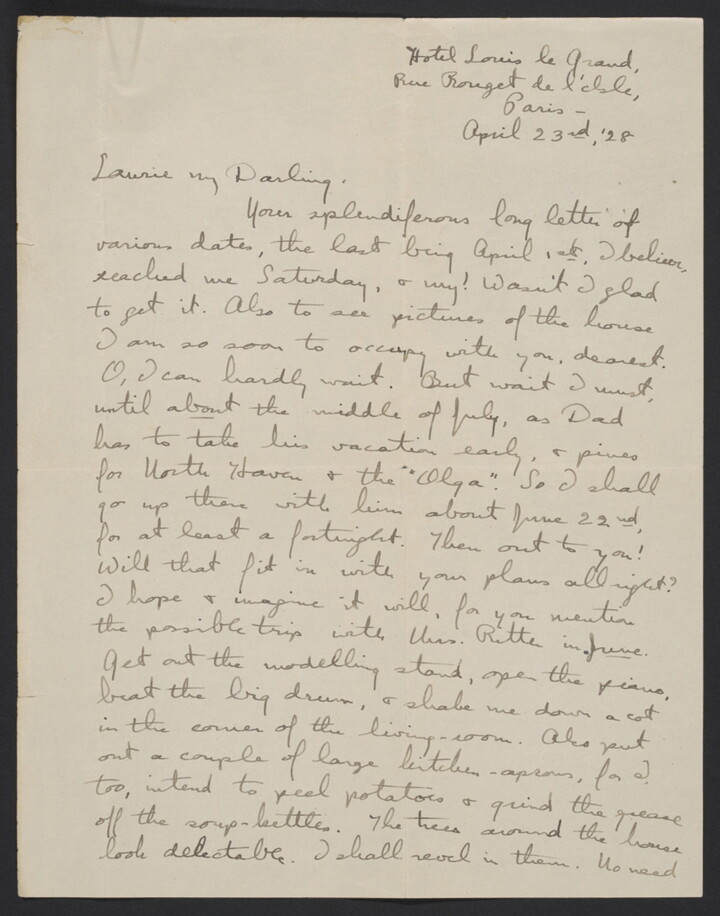 Hotel Louis le Grand,
Rue Rouget de l'Isle,
Paris –
April 23rd, '28
Laurie my Darling.
Your splendiferous long letter of
various dates, the last being April 1st, I believe,
reached me Saturday, & my! Wasn't I glad
to get it. Also to see pictures of the house
I am so soon to occupy with you, dearest.
O, I can hardly wait. But wait I must,
until about the middle of July, as Dad
has to take his vacation early, & pines
for North Haven & the "Olga". So I shall
go up there with him about June 22nd,
for at least a fortnight. Then out to you!
Will that fit in with your plans all right?
I hope & imagine it will, for you mention
the possible trip with Mrs. Ritter in June.
Get out the modelling stand, open the piano,
beat the big drum, & shake me down a cot
in the corner of the living-room. Also put
out a couple of large kitchen-aprons, for I
too, intend to peel potatoes & grind the grease
off the soup-kettles. The trees around the house
look delectable. I shall revel in them. No need